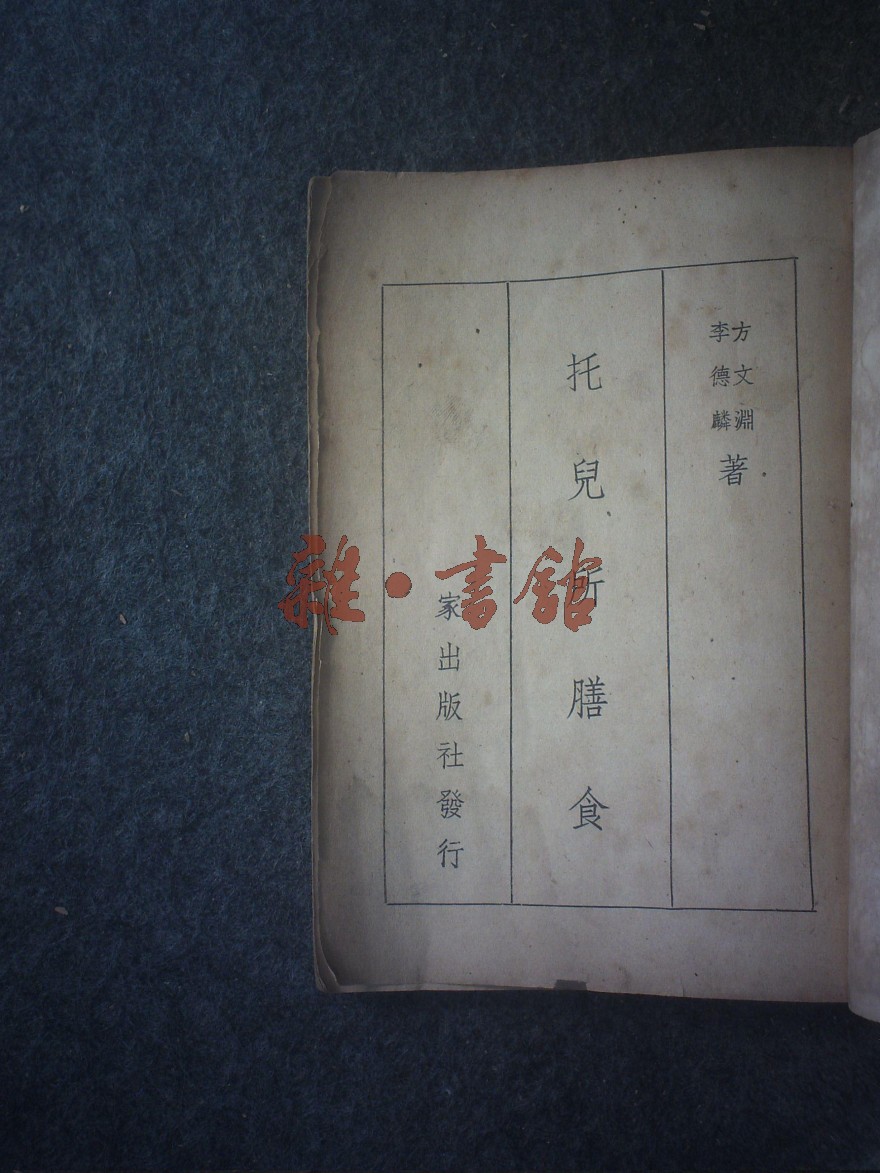 方文淵
李德麟
著
托兒所膳食
家出版社發行
雜·書舘